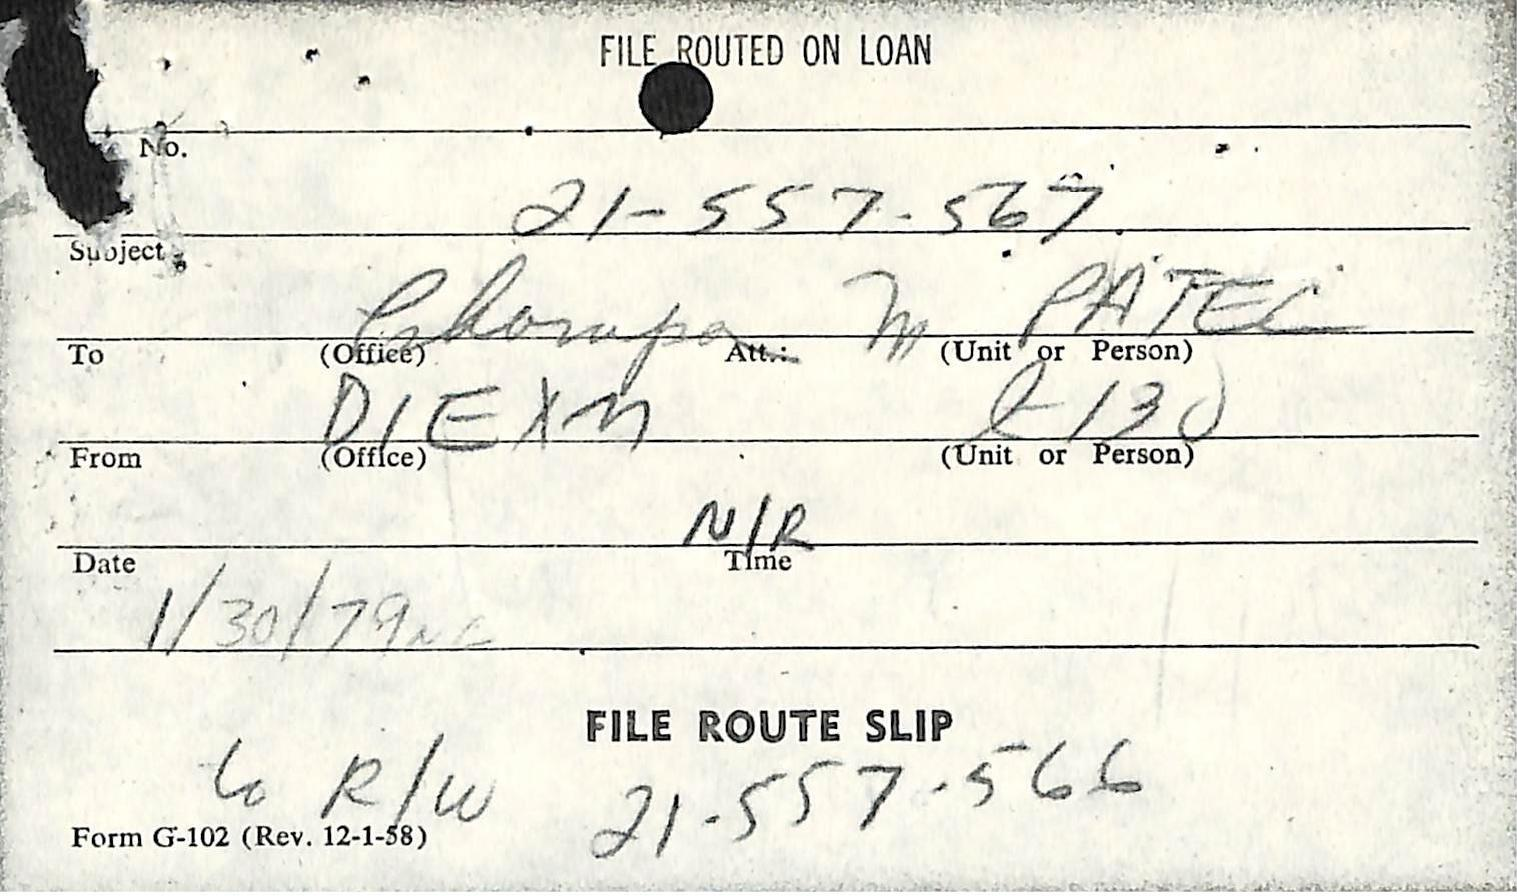 FILE ROUTED ON LOAN
No.
21-557-567
Subject
M PATEL
To (Office) Att.: (Unit or Person)
DIEXM 130
From (Office) (Unit or Person)
N/R
Date Time
1/30/79
FILE ROUTE SLIP
to R/W 21-557-566
Form G-102 (Rev. 12-1-58)